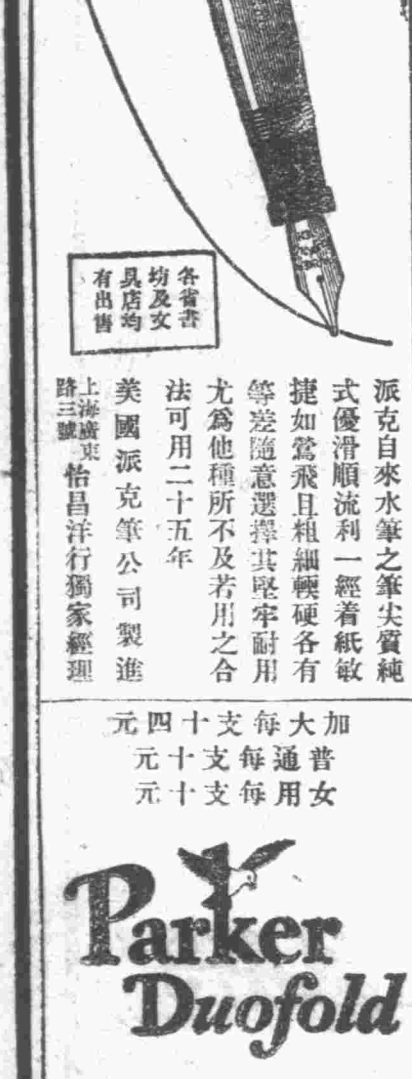 各省書
坊及文
具店均
有出售
派克自來水筆之筆尖質純
式優滑順流利一經着紙敏
捷如鶯飛且粗細輭硬各有
等差隨意選擇其堅牢耐用
尤爲他種所不及若用之合
法可用二十五年
美國派克筆公司製進
上海廣東
路三號
怡昌洋行獨家經理
加大每支十四元
普通每支十元
女用每支十元
Parker
Duofold